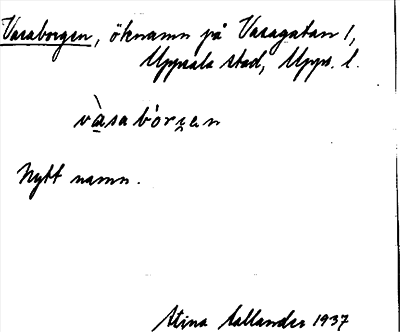 Vasaborgen, öknamn på Vasagatan 1,
Uppsala stad, Upps. l.
vàsabórgen
Nytt namn.
Stina Sallander 1937